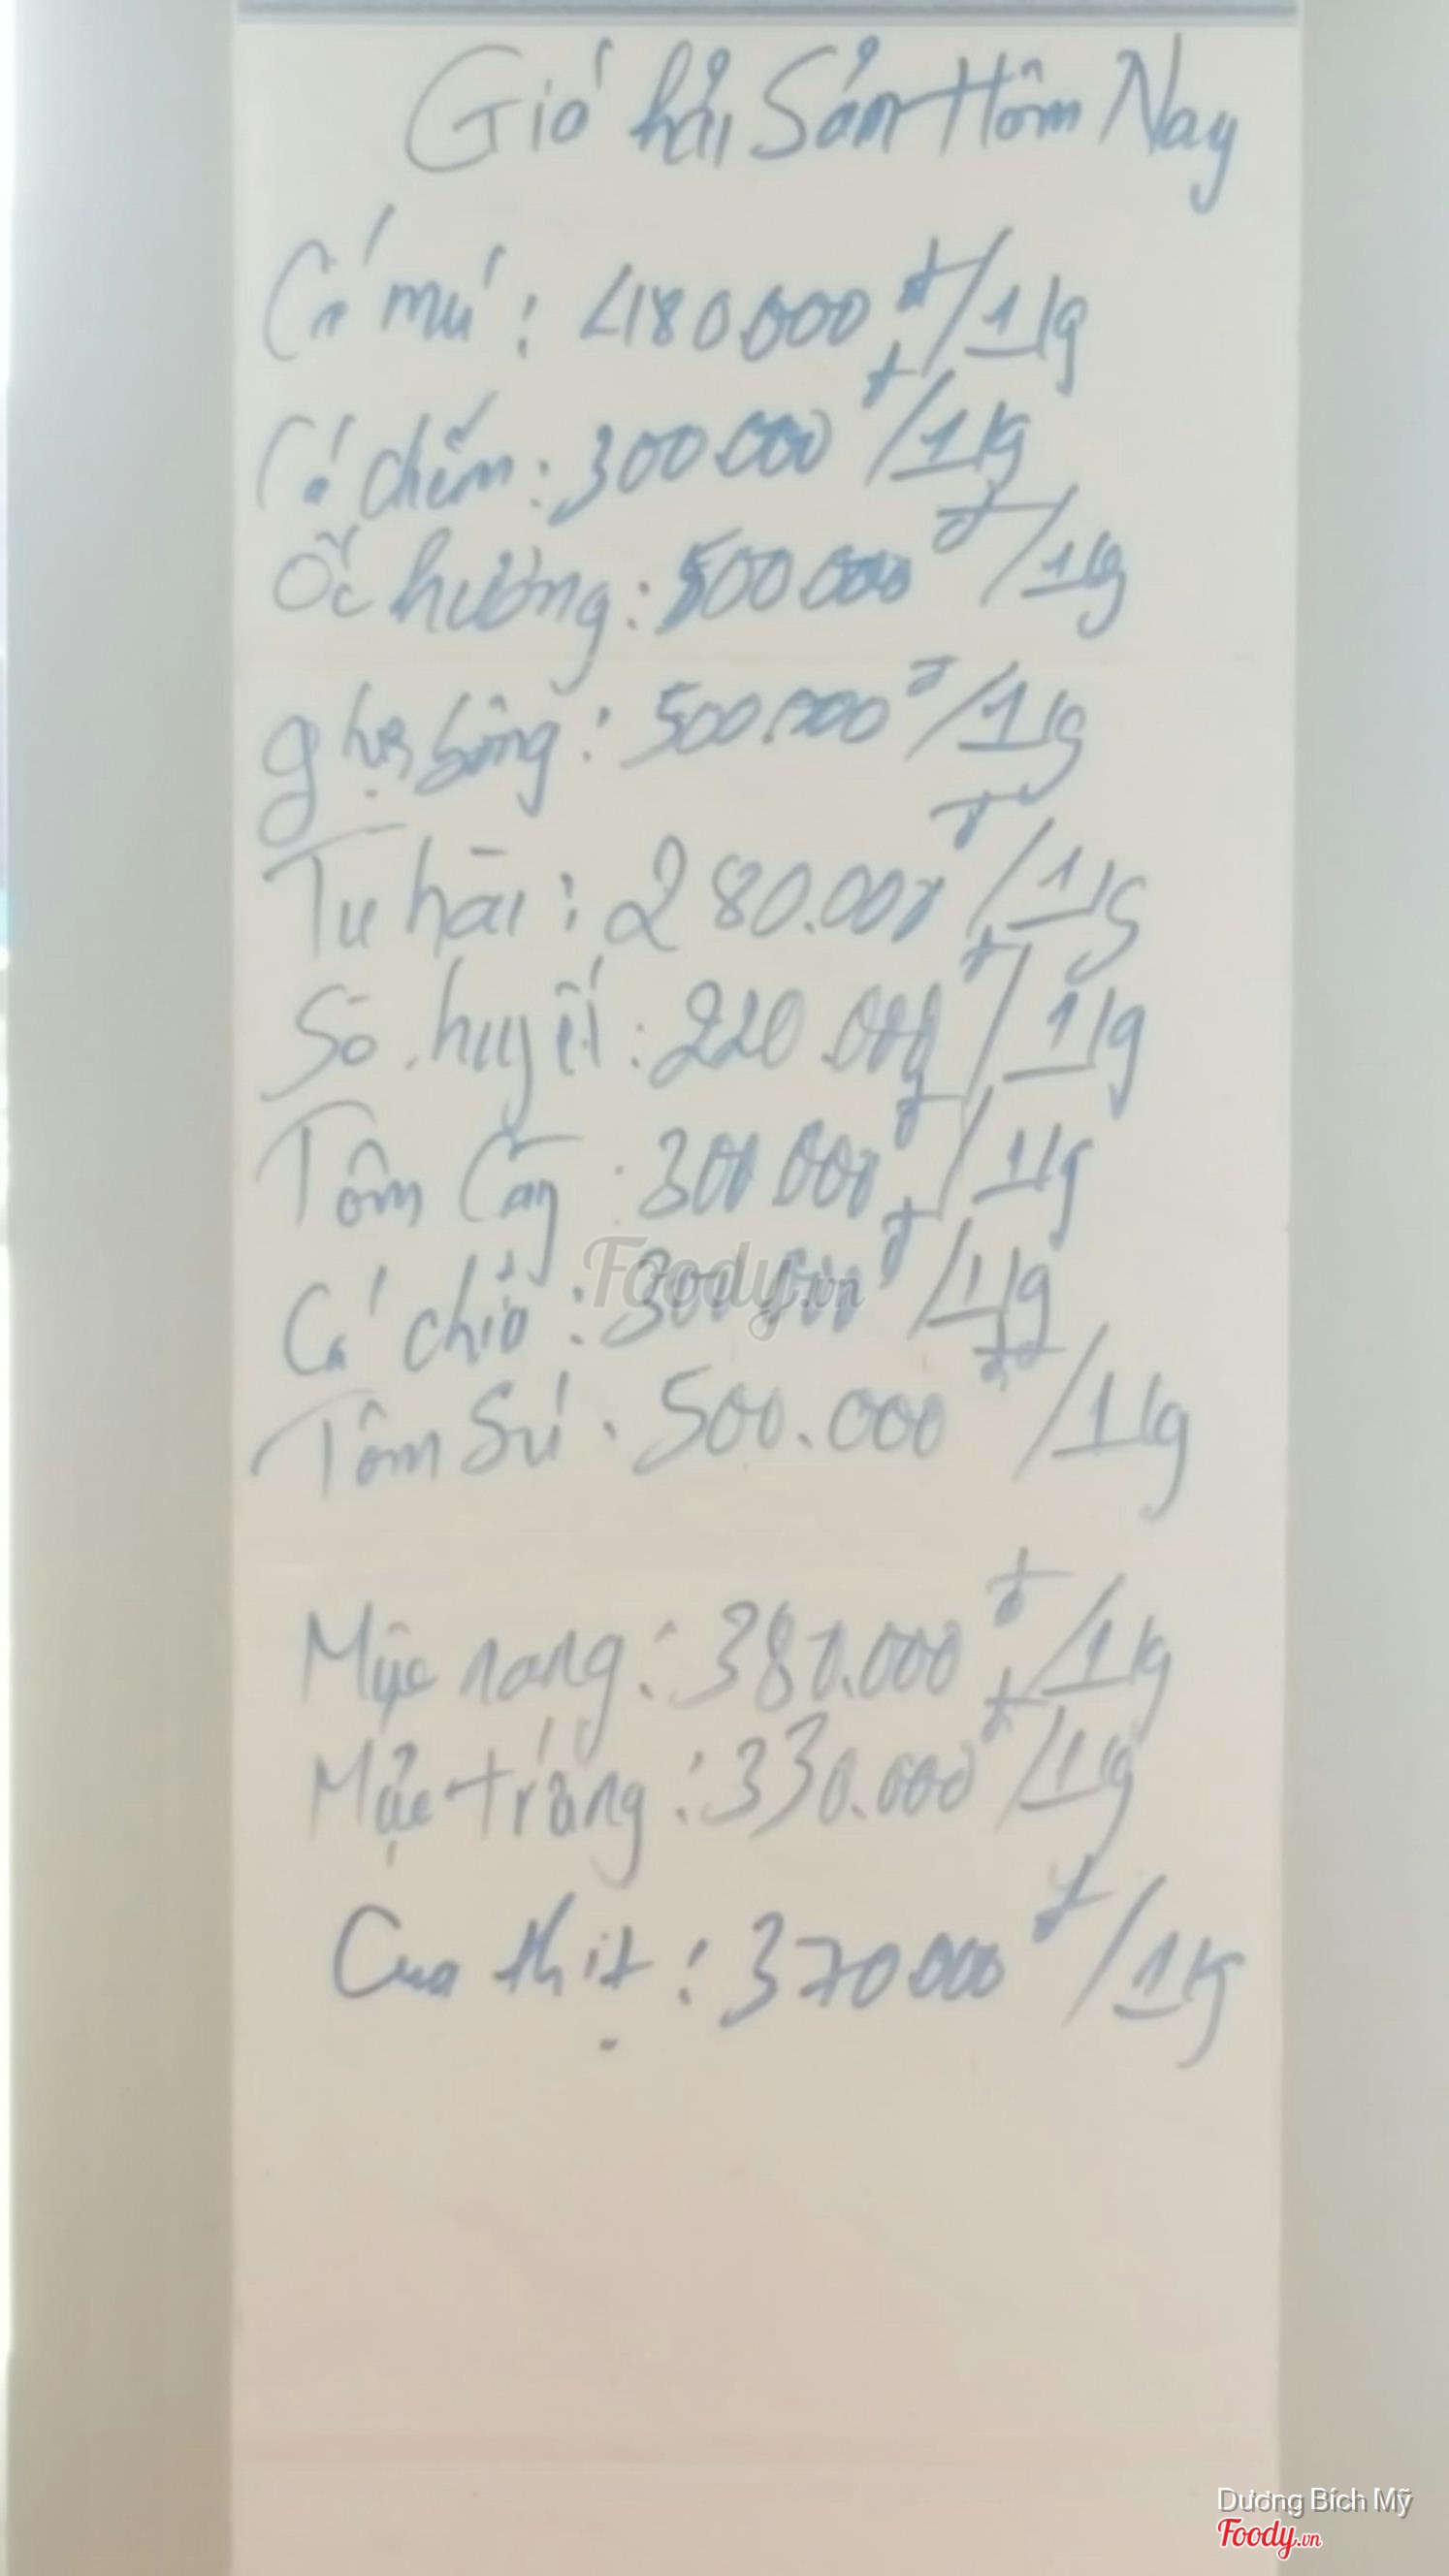 Giá hải Sản Hôm Nay
Cá mú: 480.000đ/1kg
Cá chẽm: 300.000đ/1kg
Ốc hương: 500.000đ/1kg
ghẹ bông: 500.000đ/1kg
Tu hài: 280.000đ/1kg
Sò huyết: 220.000đ/1kg
Tôm Càng: 300.000đ/1kg
Cá chìa: 300.000đ/1kg
Tôm Sú: 500.000đ/1kg
Mực nang: 380.000đ/1kg
Mực trứng: 330.000đ/1kg
Cua thịt: 370.000đ/1kg
Foody.vn
Dương Bích Mỹ
Foody.vn